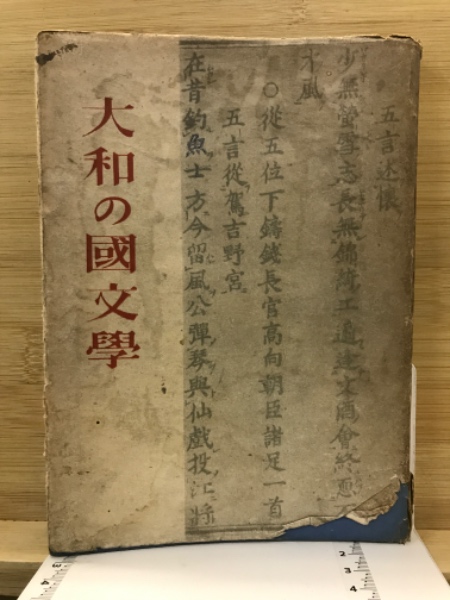 大和の國文學
五言述懷
少無螢雪志長無錦綺工適逢文酒會終恧
才風
○從五位下鑄錢長官高向朝臣諸足一首
五言從駕吉野宮
在昔釣魚士方今留鳳公彈琴與仙戲投江將
2
3
4
3
4